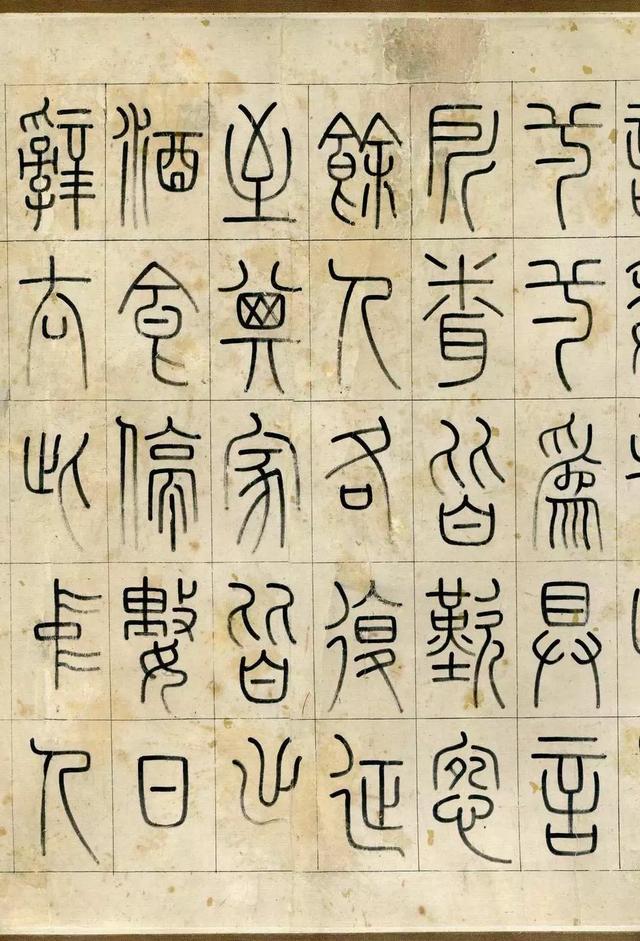 一一為具言
所聞皆歎惋
餘人各復延
至其家皆出
酒食停數日
辭去此中人